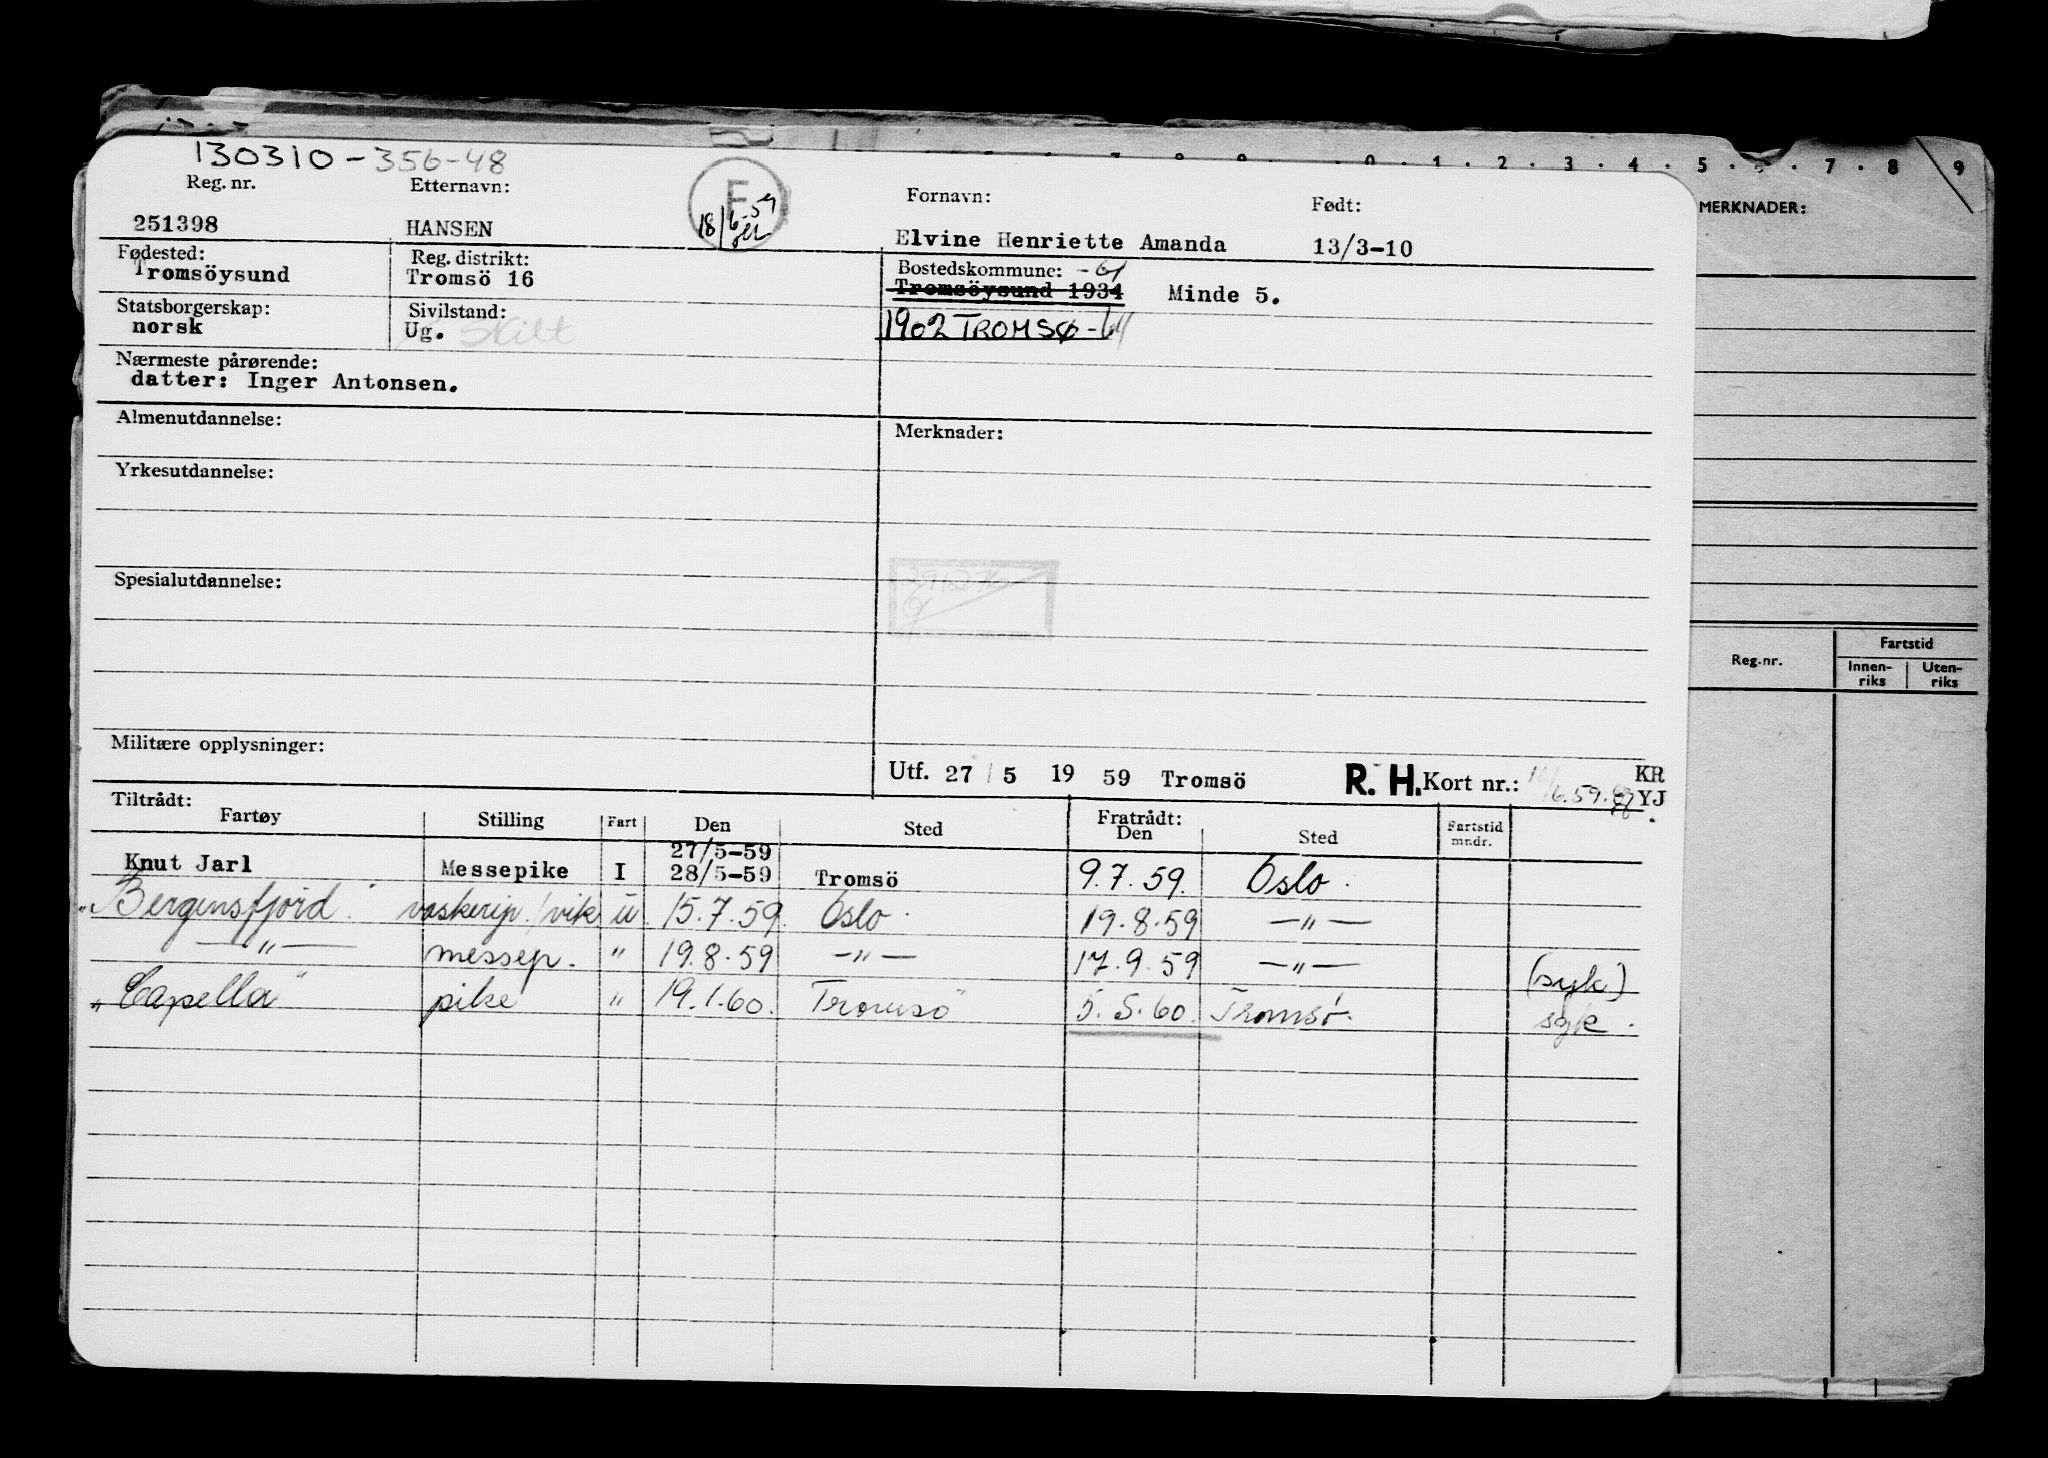 130310-356-48
0 . 1 . 2 . 3 . 4 . 5 . 6 . 7 . 8 9
Reg. nr. Etternavn: F Fornavn: Født:
18/6-59
251398 HANSEN Elvine Henriette Amanda 13/3-10
Fødested: Reg. distrikt: Bostedskommune: -61
Tromsöysund Tromsö 16 Tromsöysund 1934 Minde 5.
Statsborgerskap: Sivilstand: 1902 TROMSØ -64
norsk Ug. Skilt
Nærmeste pårørende:
datter: Inger Antonsen.
Almenutdannelse: Merknader:
Yrkesutdannelse:
Spesialutdannelse:
Militære opplysninger:
Utf. 27 / 5 19 59 Tromsö R. H. Kort nr.: KR
/6.59. YJ
Tiltrådt: Fratrådt:
Fartøy Stilling Fart Den Sted Den Sted Fartstid mndr.
27/5-59
Knut Jarl Messepike I 28/5-59 Tromsö 9.7.59. Oslo.
"Bergensfjord" vaskerip./vik u. 15.7.59 Oslo. 19.8.59 —"—
—"— messep. " 19.8.59 —"— 17.9.59 —"— (syk)
"Capella" pike " 19.1.60. Tromsö 5.5.60. Tromsø. syk.
MERKNADER:
Reg.nr. Fartstid
Innen-riks Uten-riks